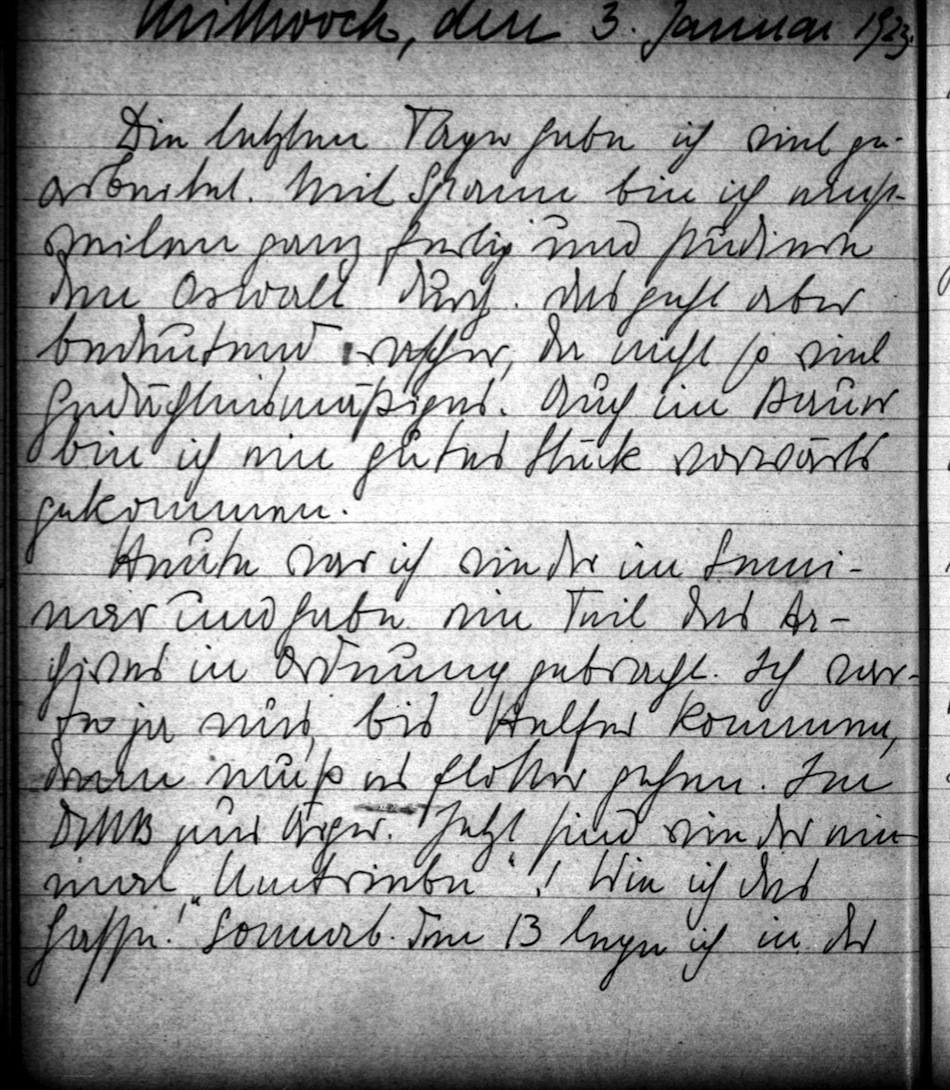 Mittwoch, den 3. Januar 1923.
Die letzten Tage habe ich viel ge-
arbeitet. Mit Spann bin ich einst-
weilen ganz fertig und studiere
den Oswalt durch. Das geht aber
bedeutend rascher, da nicht so viel
Gedächtnismäßiges. Auch im Bauer
bin ich ein gutes Stück vorwärts
gekommen.
Heute war ich wieder im Semi-
nar und habe ein Teil des Ar-
chives in Ordnung gebracht. Ich war-
te ja nur, bis Helfer kommen,
dann muß es flotter gehen. Im
nur Ärger. Jetzt sind wieder ein-
mal "Umtriebe"! Wie ich das
hasse! Sonnab. den 13 lege ich in der